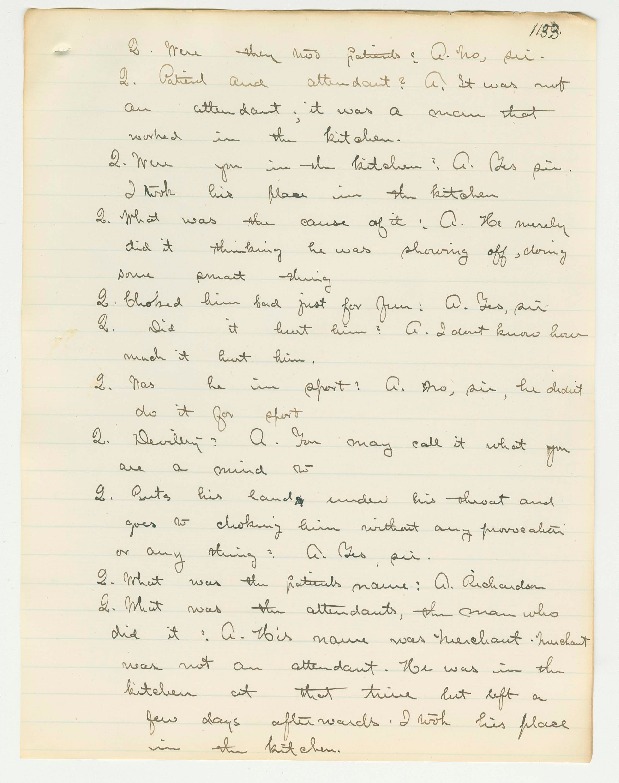 1133
Q. Were they two patients? A. No, sir.
Q. Patient and attendant? A. It was not
an attendant; it was a man that
worked in the kitchen.
Q. Were you in the kitchen? A. Yes sir.
I took his place in the kitchen
Q. What was the cause of it? A. He merely
did it thinking he was showing off, doing
some smart thing
Q. Choked him bad just for fun? A. Yes, sir
Q. Did it hurt him? A. I dont know how
much it hurt him.
Q. Was he in sport? A. No, sir, he didn't
do it for sport
Q. Deviltry? A. You may call it what you
are a mind to
Q. Puts his hands under his throat and
goes to choking him without any provocation
or any thing? A. Yes, sir.
Q. What was the patients name? A. Richardson
Q. What was the attendants, the man who
did it? A. His name was Merchant. Merchant
was not an attendant. He was in the
kitchen at that time but left a
few days afterwards. I took his place
in the kitchen.